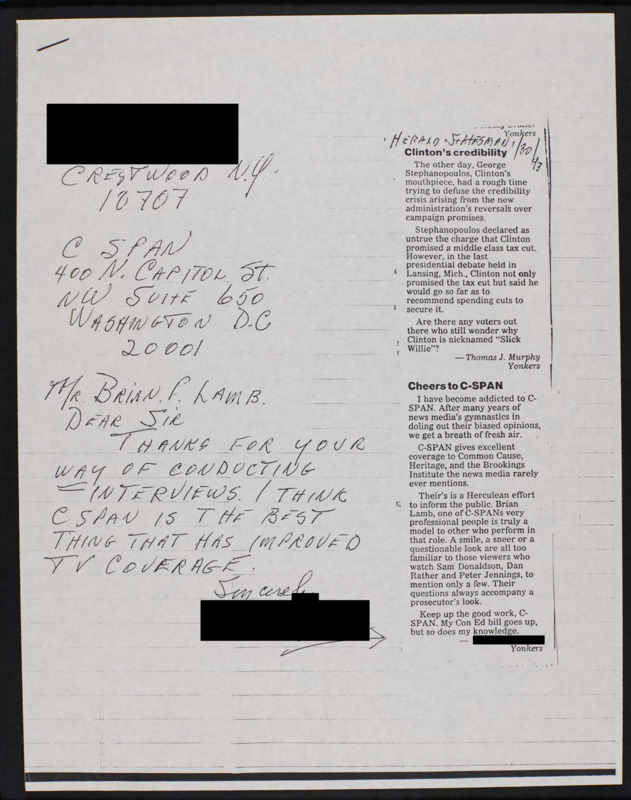 CRESTWOOD N.Y.
10707
C SPAN
400 N. CAPITOL St.
NW SUITE 650
WASHINGTON D.C
20001
Mr. BRIAN. P. LAMB.
DEAR SIR
THANKS FOR YOUR
WAY OF CONDUCTING
INTERVIEWS. I THINK
C SPAN IS THE BEST
THING THAT HAS IMPROVED
TV COVERAGE.
Sincerely
Yonkers
HERALD STATESMAN 1/30/93
Clinton's credibility
The other day, George
Stephanopoulos, Clinton's
mouthpiece, had a rough time
trying to defuse the credibility
crisis arising from the new
administration's reversals over
campaign promises.
Stephanopoulos declared as
untrue the charge that Clinton
promised a middle class tax cut.
However, in the last
presidential debate held in
Lansing, Mich., Clinton not only
promised the tax cut but said he
would go so far as to
recommend spending cuts to
secure it.
Are there any voters out
there who still wonder why
Clinton is nicknamed "Slick
Willie"?
— Thomas J. Murphy
Yonkers
Cheers to C-SPAN
I have become addicted to C-
SPAN. After many years of
news media's gymnastics in
doling out their biased opinions,
we get a breath of fresh air.
C-SPAN gives excellent
coverage to Common Cause,
Heritage, and the Brookings
Institute the news media rarely
ever mentions.
Their's is a Herculean effort
to inform the public. Brian
Lamb, one of C-SPANs very
professional people is truly a
model to other who perform in
that role. A smile, a sneer or a
questionable look are all too
familiar to those viewers who
watch Sam Donaldson, Dan
Rather and Peter Jennings, to
mention only a few. Their
questions always accompany a
prosecutor's look.
Keep up the good work, C-
SPAN. My Con Ed bill goes up,
but so does my knowledge.
—
Yonkers